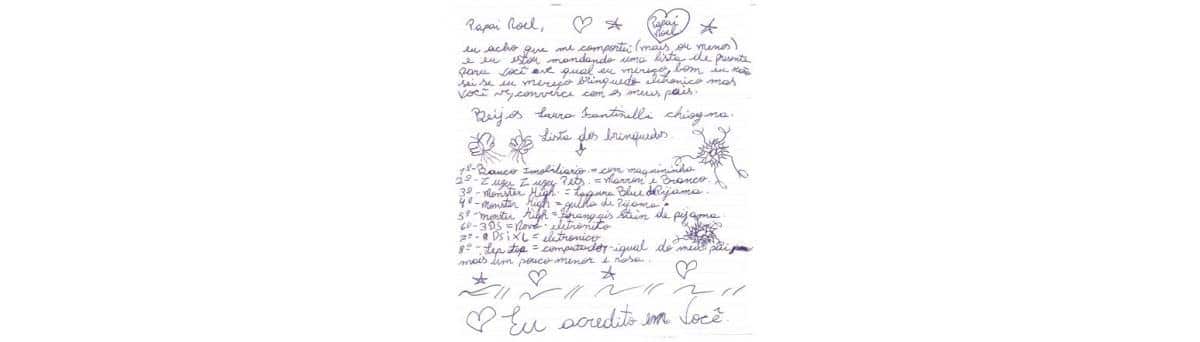 Papai Noel,
Papai
Noel
eu acho que me comportei (mais ou menos)
e eu estou mandando uma lista de presente
para você ve qual eu mereço, bom eu não
sei se eu mereço brinquedo eletronico mas
você ve, converce com os meus pais.
Beijos Laura Santinelli
Lista dos brinquedos.
1º - Banco Imobiliario = com maquininha
2º - Zuzu Zuzu Pets. = Marrom e Branco.
3º - Monster High = Laguna Blue de Pijama.
4º - Monster High = de Pijama.
5º - Monster High = Stein de pijama.
6º - 3DS = Novo - eletronico
7º - DSiXL = eletronico
8º - Lep top = computador igual do meu pai
mais um pouco menor e rosa.
Eu acredito em Você.